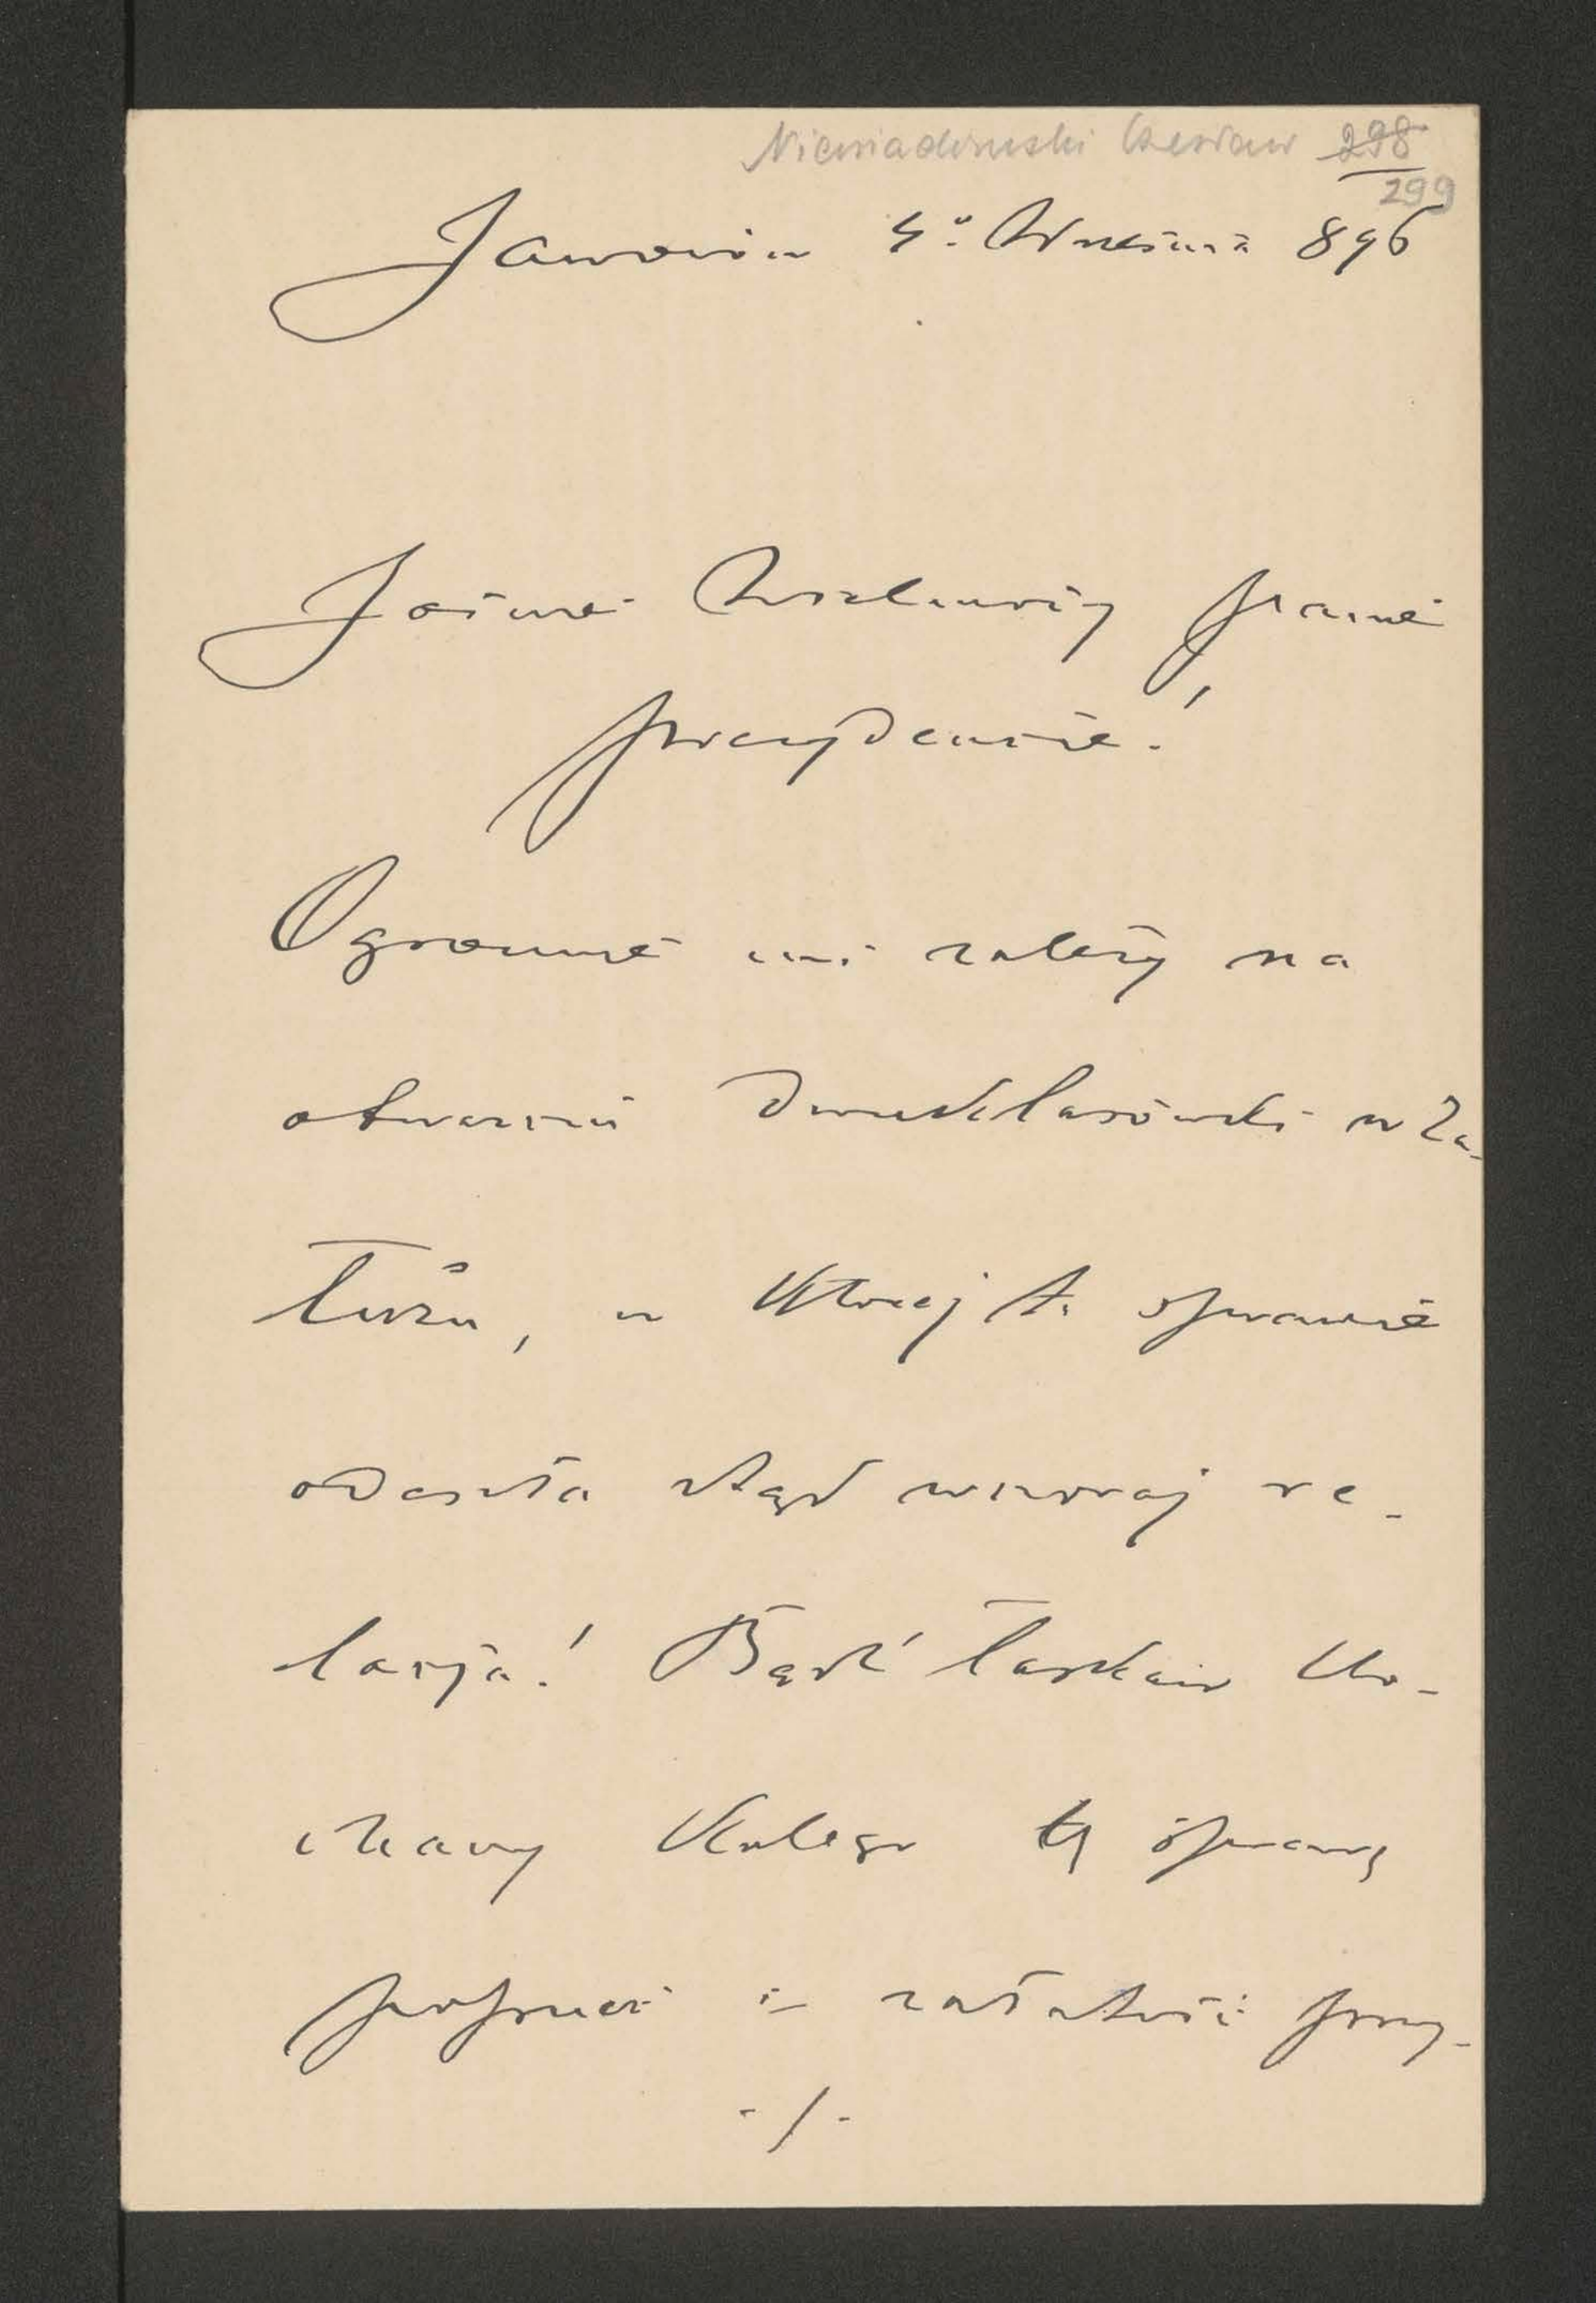 Niewiadomski Czesław 298
299
Jaworów 4º Września 896
Jaśnie Wielmożny Panie
Prezydencie!
Ogromnie mi zależy na
otwarciu dwuklasówki w Za-
łużu, w której to sprawie
odeszła stąd wczoraj re-
lacja! Bądź łaskaw Ko-
chany Kolego tę sprawę
poprzeć i załatwić przy-
./.